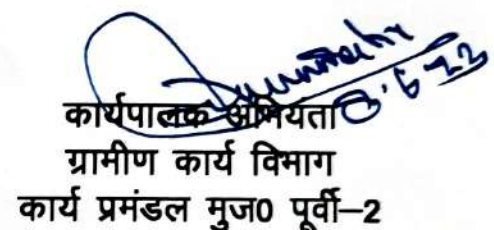 कार्यपालक अभियंता
ग्रामीण कार्य विभाग
कार्य प्रमंडल मुज0 पूर्वी–2